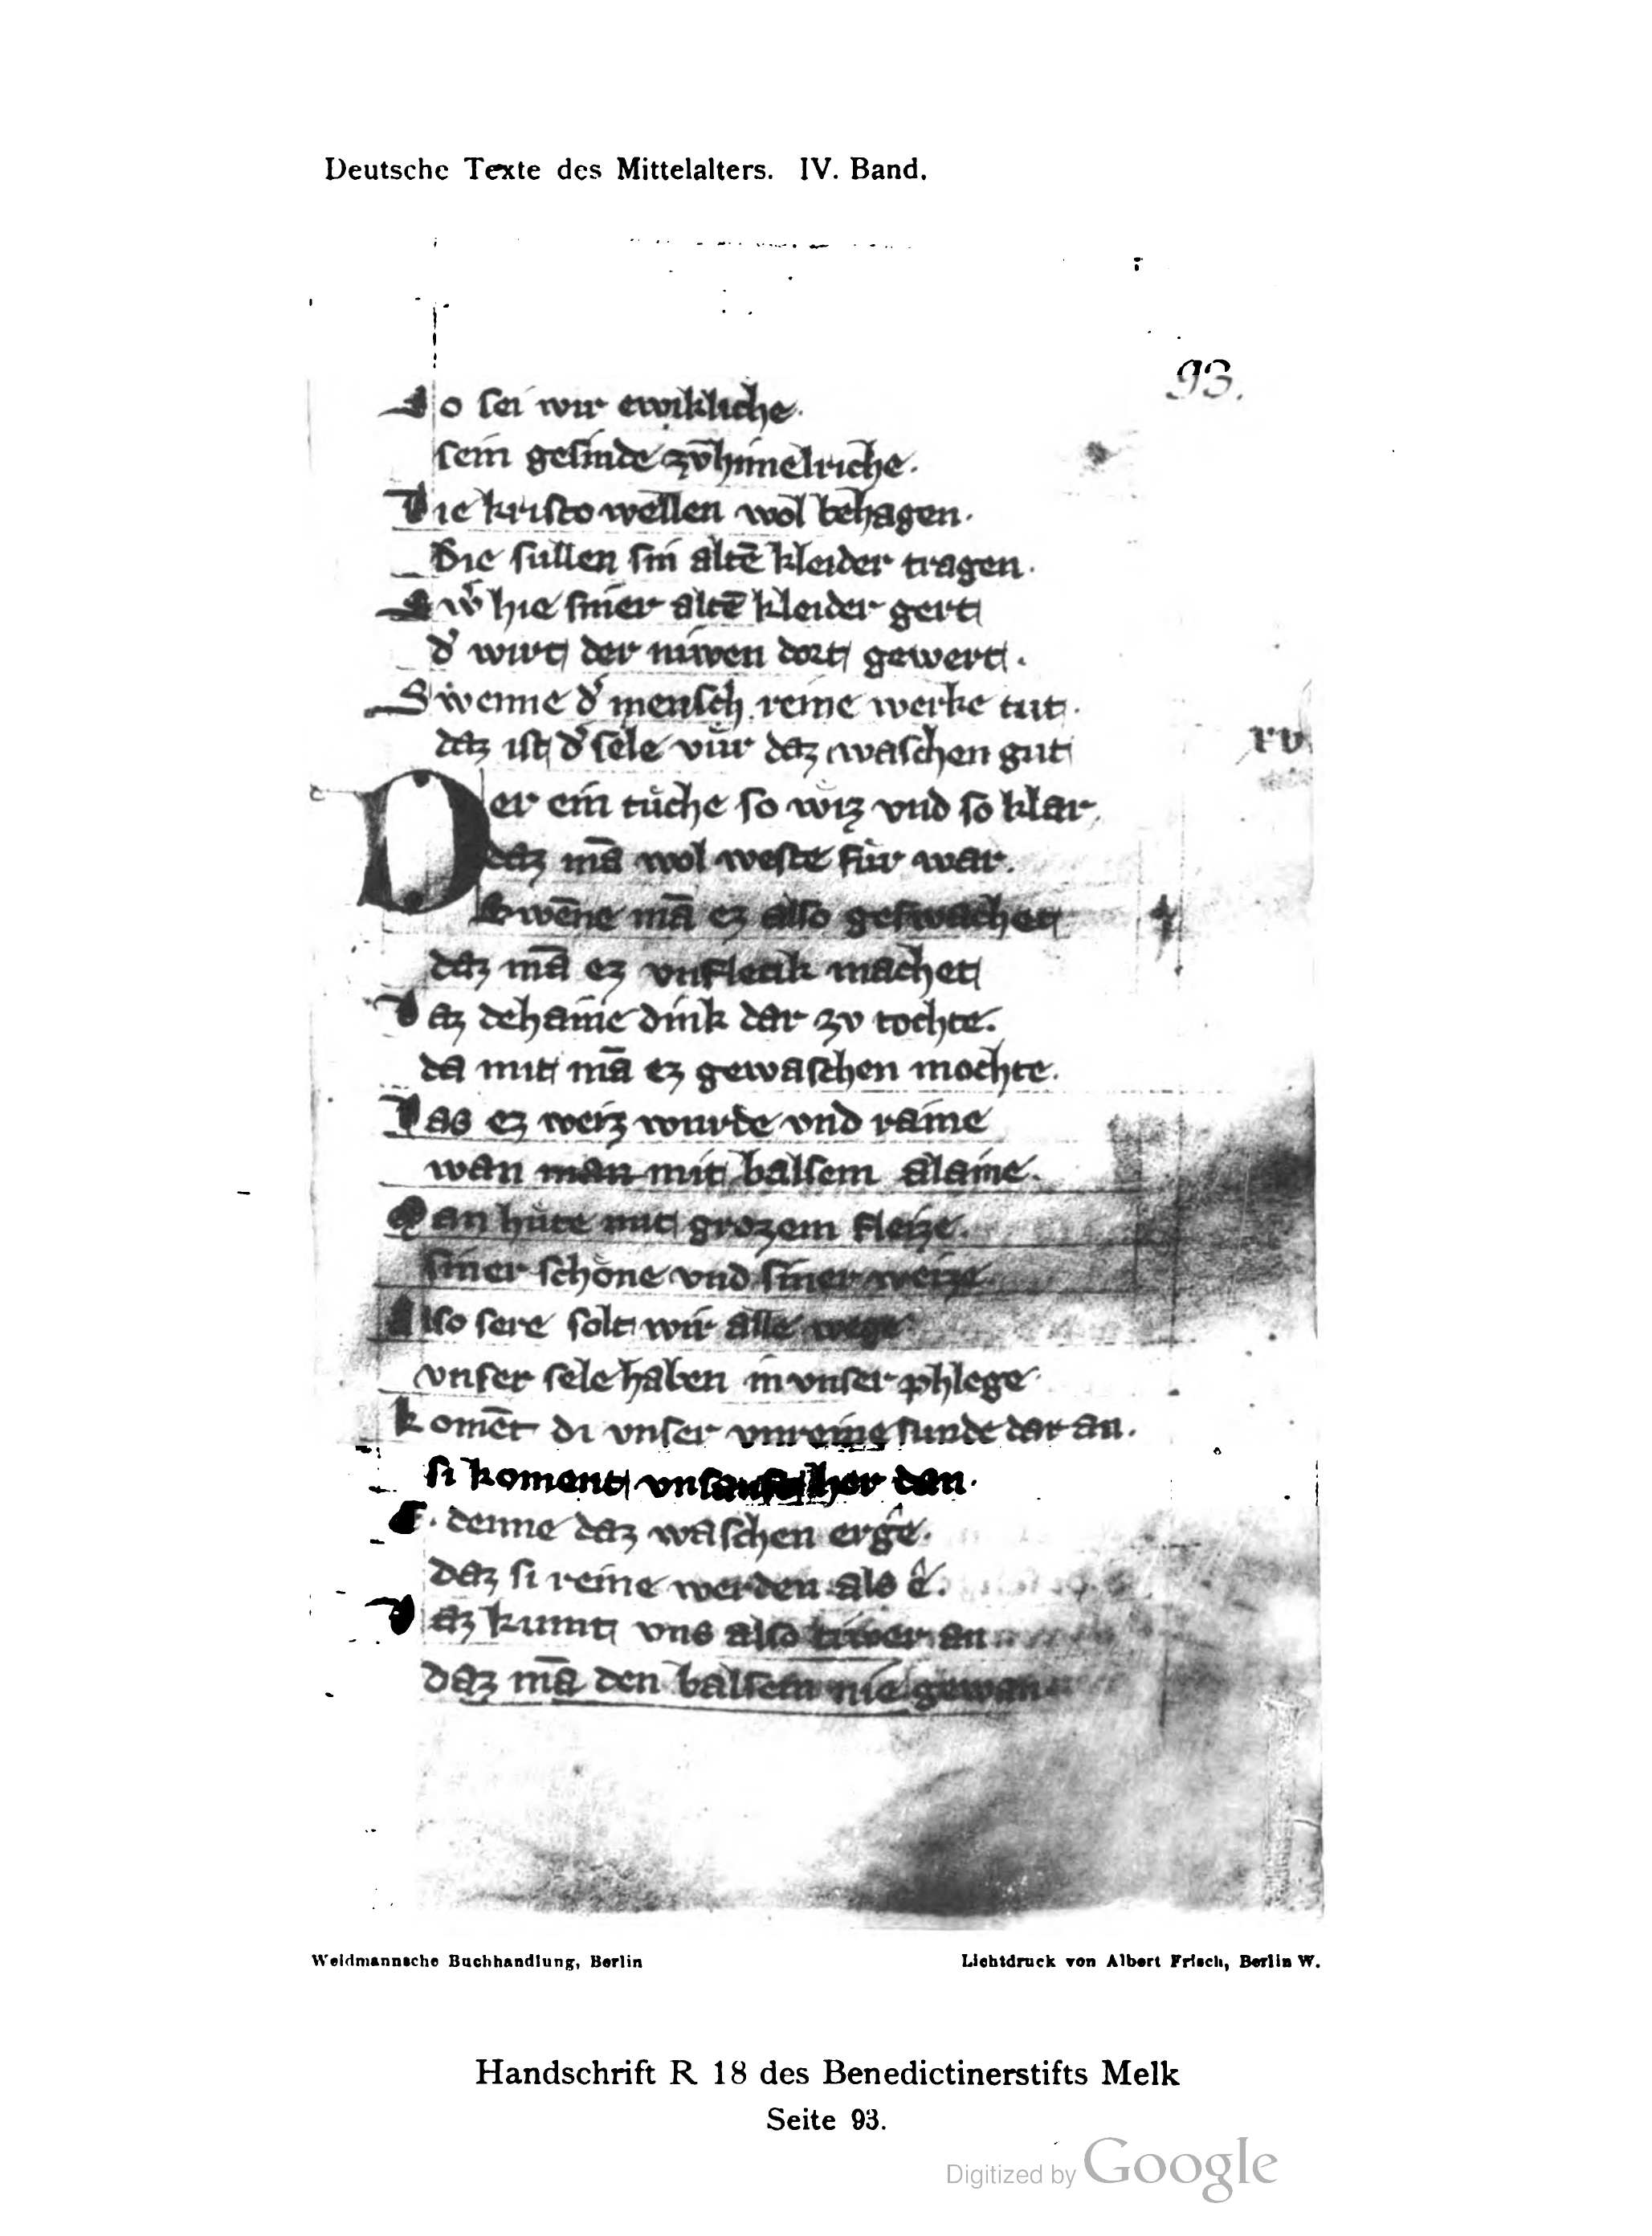 Deutsche Texte des Mittelalters. IV. Band.
93.
So sei wir ewikliche.
sein gesinde zv̄ himelriche.
Die kristo wellen wol behagen.
Die sullen sin altē kleider tragen.
Swͬ hie siner altē kleider gert
dͬ wirt der niwen dort gewert.
Swenne dͬ mensch reine werke tut.
daz ist dͬ sele vu̇r daz waschen gut
rv
Der ein tu̇che so wiz vnd so klar.
daz mā wol weste fu̇r war.
Swēne mā ez also geswachet
daz mā ez vnfletik machet
Daz dehaine dink dar zv tochte.
da mit mā ez gewaschen mochte.
Das ez weiz wurde vnd raine
wan man mit balsem alaine.
Man hu̇te mit grozem fleize.
siner scho̊ne vnd siner weize
Also sere solt wir alle wege
vnser sele haben in vnser phlege
komēt di vnser vnreine sunde dar an.
si koment vnsanft her dan.
E. denne daz waschen ergê.
daz si reine werden als ê.
Daz kumt vns also an
daz mā den balsem nie gewan
Weidmannsche Buchhandlung, Berlin
Lichtdruck von Albert Frisch, Berlin W.
Handschrift R 18 des Benedictinerstifts Melk
Seite 93.
Digitized by Google